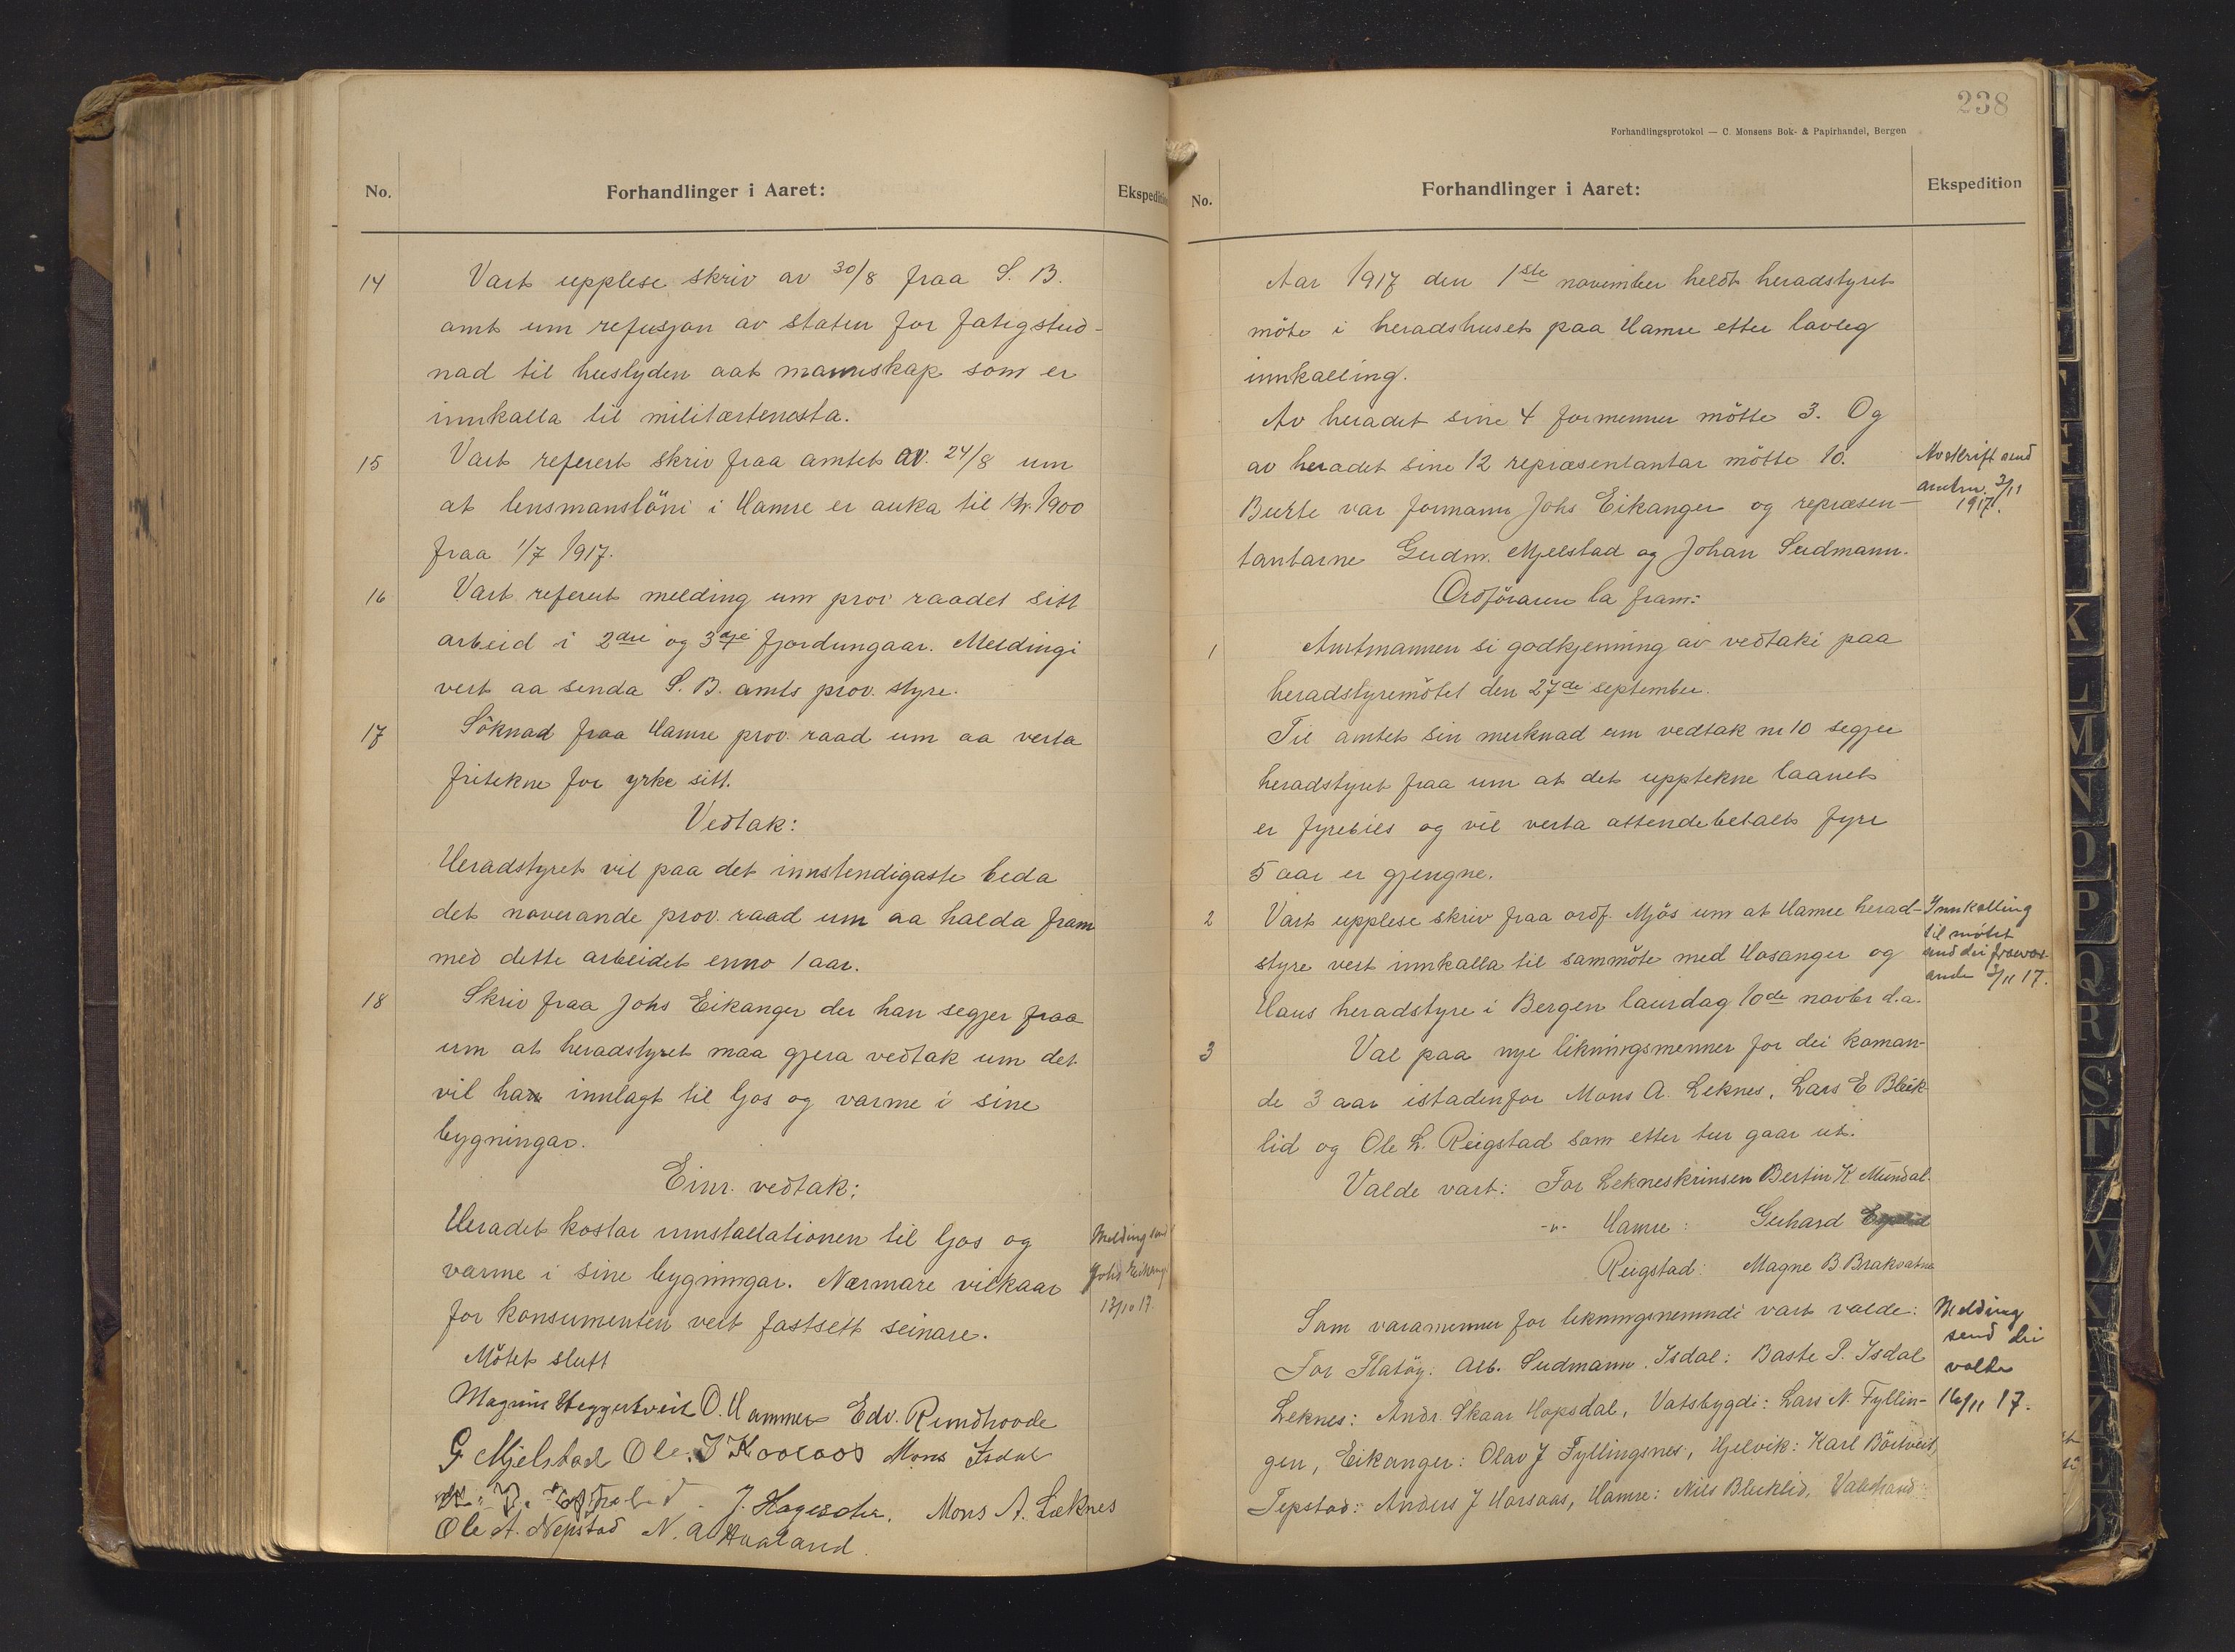 No.
Forhandlinger i Aaret:
Ekspedition
14
Vart upplese skriv av 30/8 fraa S. B.
amt um refusjon av staten for fatigstud-
nad til huslyden aat mannskap som er
innkalla til militærtenesta.
15
Vart referert skriv fraa amtet av. 24/8 um
at lensmanslöni i Hamre er auka til Kr. 1900
fraa 1/7 1917.
16
Vart referert melding um prov raadet sitt
arbeid i 2dre og 3dje fjordungaar. Meldingi
vert aa senda S. B. amts prov. styre.
17
Söknad fraa Hamre prov. raad um aa verta
fritekne for yrke sitt.
Vedtak:
Heradstyret vil paa det innstendigaste beda
det noverande prov. raad um aa halda fram
med dette arbeidet enno 1 aar.
18
Skriv fraa Johs Eikanger der han segjer fraa
um at heradstyret maa gjera vedtak um det
vil ha innlagt til ljos og varme i sine
bygningar.
Einr. vedtak:
Heradet kostar innstallationen til ljos og
varme i sine bygningar. Nærmare vilkaar
for konsumenten vert fastsett seinare.
Melding send
Johs Eikanger
13/10 17.
Mötet slutt
Magnus Heggertveit O. Hammer Edv. Rundhovde
G Mjelstad Ole. J Mons Isdal
J. Mons A. Leknes
Ole A. Nepstad N. A Hualand
238
Forhandlingsprotokol — C. Monsens Bok- & Papirhandel, Bergen
No.
Forhandlinger i Aaret:
Ekspedition
Aar 1917 den 1ste november heldt heradstyret
möte i heradshuset paa Hamre etter lovleg
innkalling.
Av heradet sine 4 formenner mötte 3. Og
av heradet sine 12 repræsentantar mötte 10.
Burte var formann Johs Eikanger og repræsen-
tantarne Gudm. Mjelstad og Johan Sudmann.
Avskrift send
amtm. 3/11
1917.
Ordföraren la fram:
1
Amtmannen si godkjenning av vedtaki paa
heradstyremötet den 27de september.
Til amtet sin merknad um vedtak nr 10 segjer
heradstyret fraa um at det upptekne laanet
er fyrebils og vil verta attendebetalt fyre
5 aar er gjengne.
2
Vart upplese skriv fraa ordf. Mjös um at Hamre herad-
styre vert innkalla til sammöte med Hosanger og
Haus heradstyre i Bergen laurdag 10de novbr d.a.
Innkalling
til mötet
send dei fråver-
ande 3/11 17.
3
Val paa nye likningsmenner for dei koman-
de 3 aar istadenfor Mons A. Leknes, Lars E Bleik-
lid og Ole L. Reigstad som etter tur gaar ut.
Valde vart: For Lekneskrinsen Bertin K Mundal.
-"- Hamre: Gerhard
Reigstad: Magne B Brakvatne
Som varamenner for likningsnemndi vart valde:
For Flatöy: Alb. Sudmann. Isdal: Baste P. Isdal
Leknes: Andr. Skaar Hopsdal, Vatsbygdi: Lars N. Fyllin-
gen, Eikanger: Olav J Fyllingsnes, Hjelvik: Karl Börtveit,
Tepstad: Anders J Horsaas, Hamre: Nils Bleiklid, Valestrand:
Melding
send dei
valde
16/11 17.
K
L
M
N
O
P
Q
R
S
T